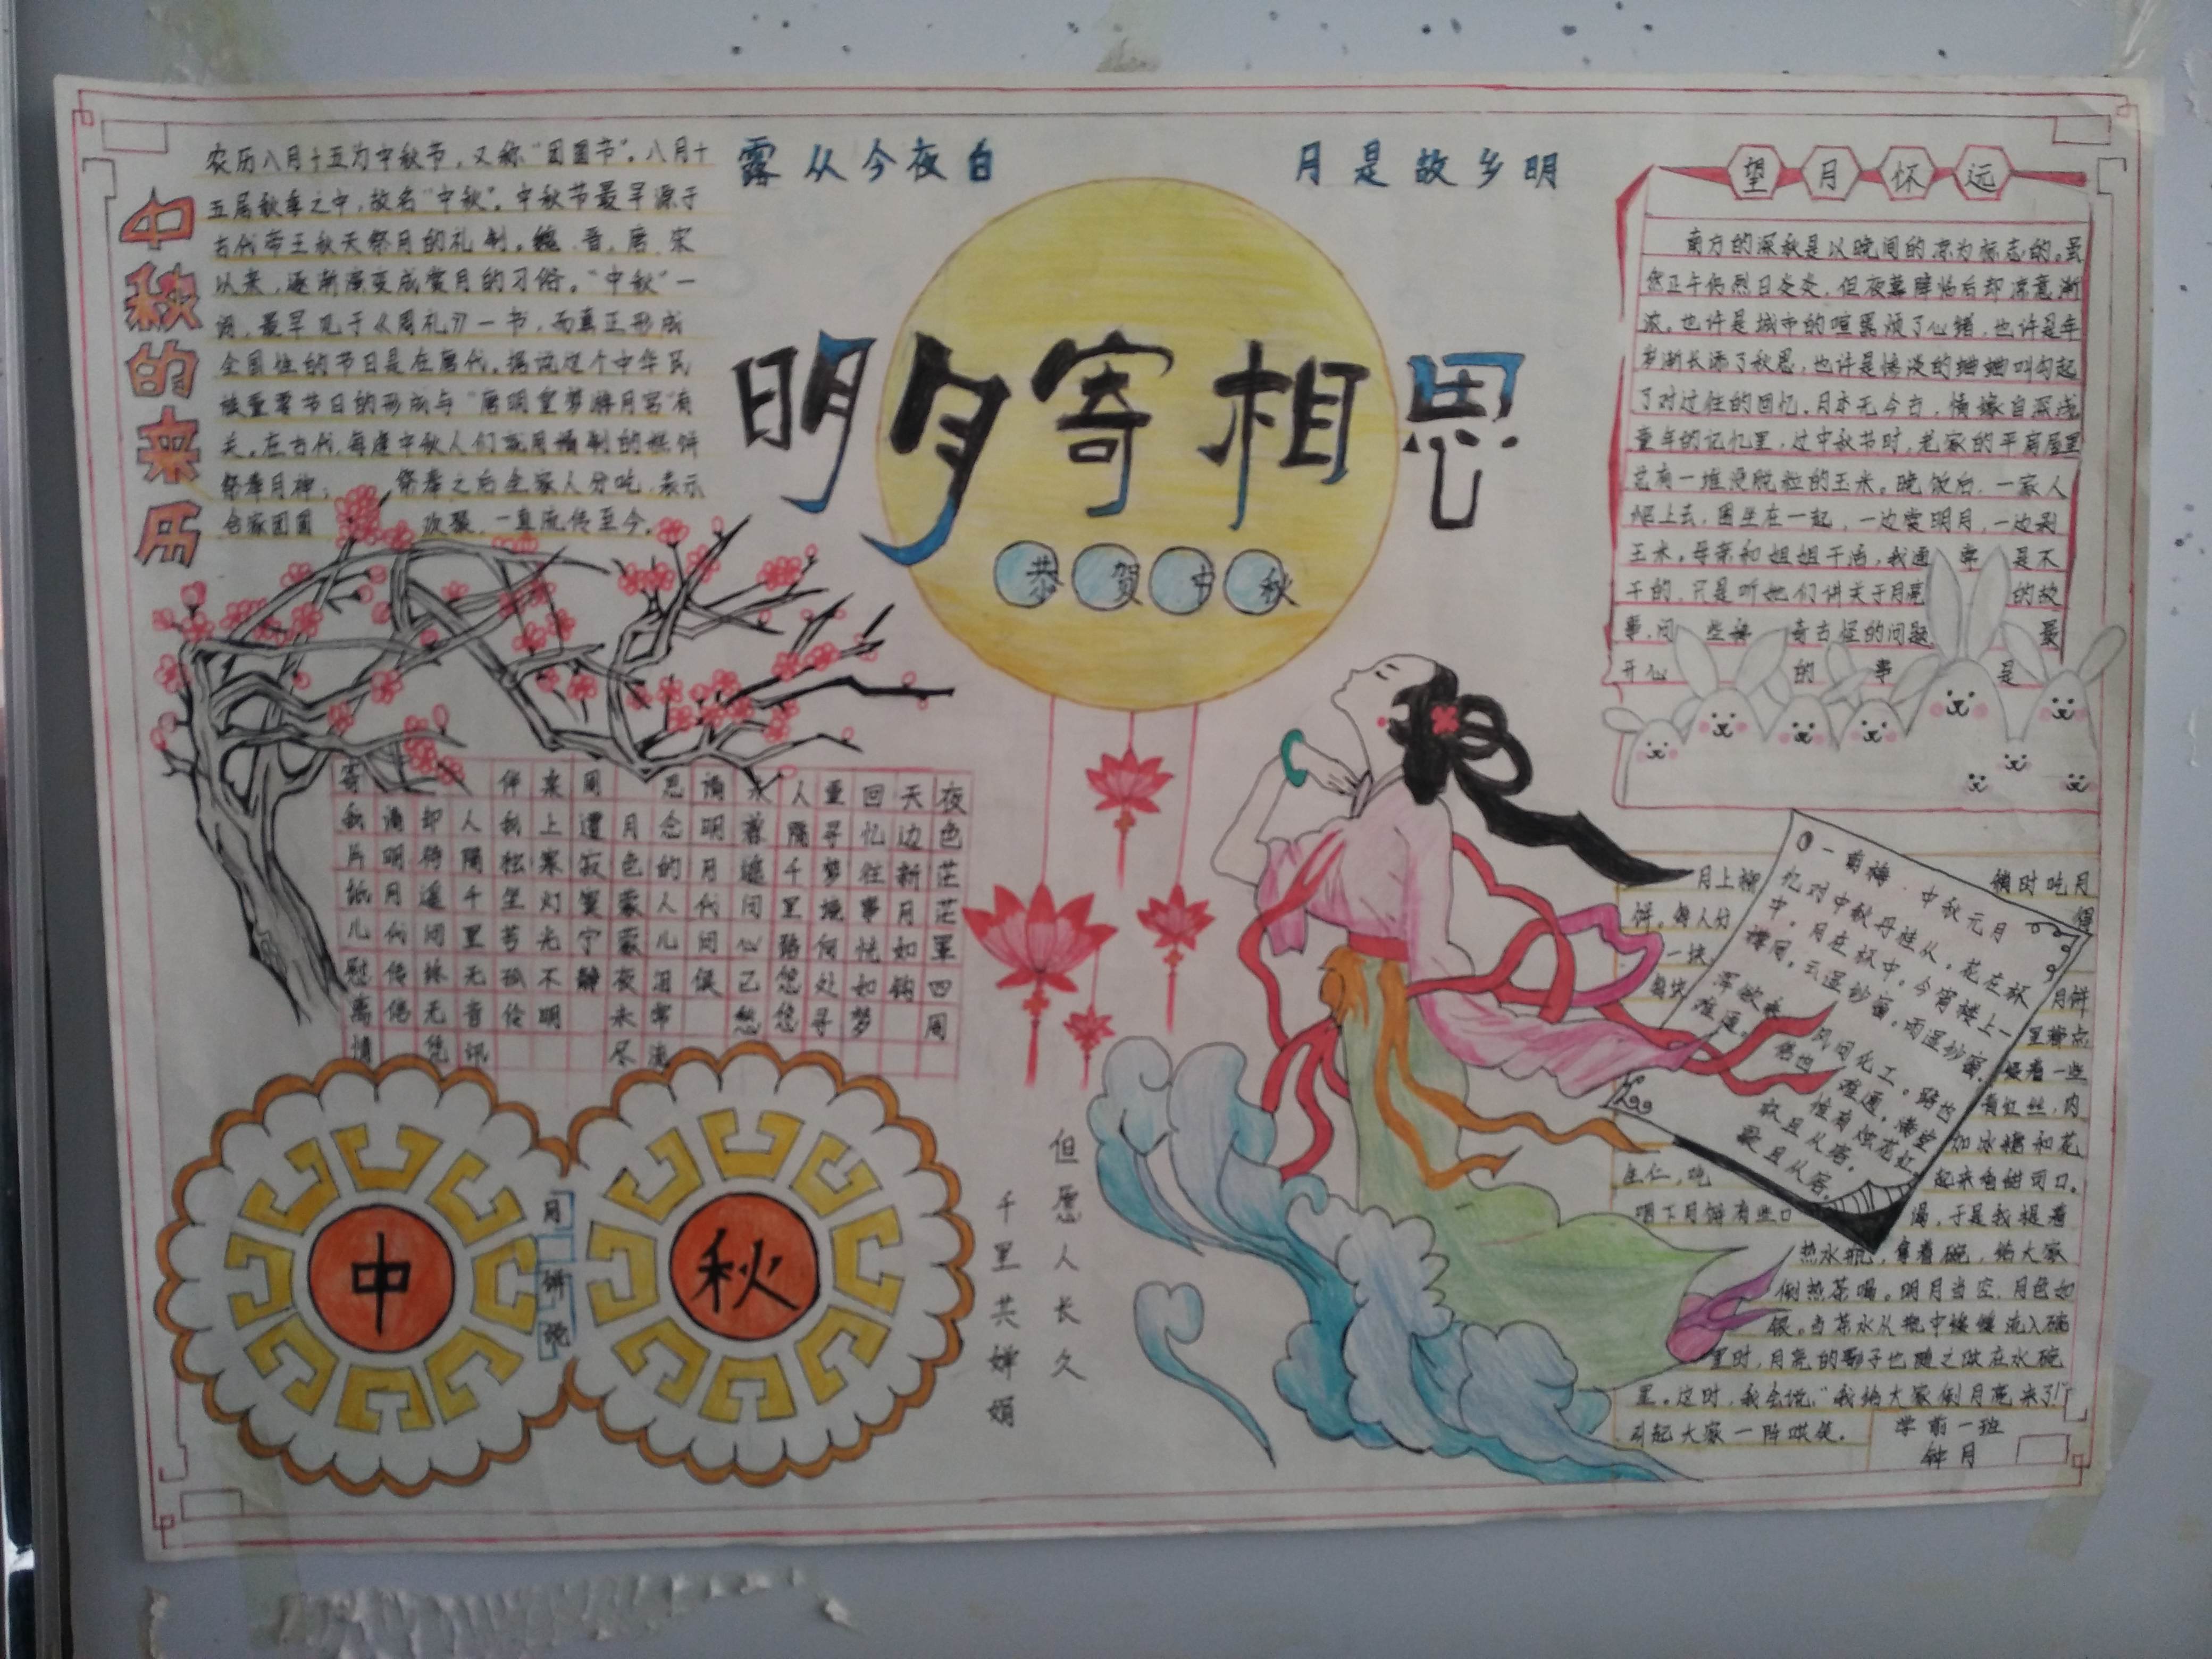 露从今夜白
月是故乡明
明月寄相思
恭贺中秋
中秋的来历
农历八月十五为中秋节,又称"团圆节"。八月十
五居秋季之中,故名"中秋"。中秋节最早源于
古代帝王秋天祭月的礼制。魏、晋、唐、宋
以来,逐渐演变成赏月的习俗。"中秋"一
词,最早见于《周礼》一书,而真正形成
全国性的节日是在唐代。据说这个中华民
族重要节日的形成与"唐明皇梦游月宫"有
关。在古代,每逢中秋人们就用精制的糕饼
祭奉月神;祭奉之后全家人分吃,表示
合家团圆欢聚,一直流传至今。
望月怀远
南方的深秋是以晚间的凉为标志的。虽
然正午仍烈日炎炎,但夜幕降临后却凉意渐
浓。也许是城市的喧嚣烦了心绪,也许是年
岁渐长添了秋思,也许是凄凄的蛐蛐叫勾起
了对过往的回忆。月本无今古,情缘自深浅
童年的记忆里,过中秋节时,老家的平扇屋里
总有一堆没脱粒的玉米。晚饭后,一家人
爬上去,围坐在一起,一边赏明月,一边剥
玉米。母亲和姐姐干活,我通常是不
干的,只是听她们讲关于月亮的故
事,问些稀奇古怪的问题 最
开心的事是
月上柳
梢时吃月
饼。每人分
一块
月饼
里
着一些
青红丝,内
加冰糖和花
生仁,吃起来香甜可口。
咽下月饼有些口渴,于是我提着
热水瓶,拿着碗,给大家
倒热茶喝。明月当空,月色如
银。当茶水从瓶中缓缓流入碗
里时,月亮的影子也随之碎在水碗
里。这时,我会说:"我给大家倒月亮来了!"
引起大家一阵哄笑。
学前一班
钟月
一剪梅·中秋元月
忆对中秋丹桂丛,花在杯
中,月在杯中。今宵楼上一
樽同,云湿纱窗,雨湿纱窗。
浑欲乘风问化工,路也
难通,信也难通。满堂
惟有烛花红,
歌且从容,
歌且从容。
夜色茫茫罩四周
天边新月如钩
回忆往事恍如梦
重寻梦境何处寻
人隔千里路悠悠
明月代问候
思念的人儿泪常流
月色蒙蒙夜未尽
周遭寂寞宁静
桌上寒灯光不明
伴我独坐苦孤伶
人隔千里无音讯
却待遥问终无凭
请明月代传信
寄我片纸儿慰离情
中
秋
月饼
但愿人长久
千里共婵娟